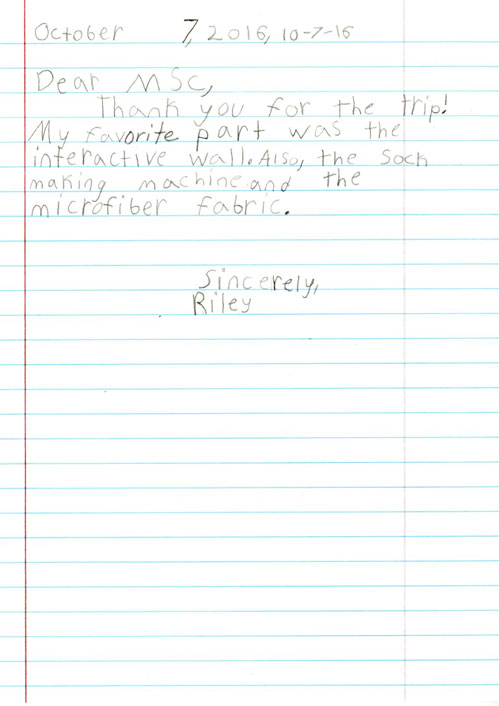 October 7, 2016, 10-7-16
Dear MSC,
Thank you for the trip!
My favorite part was the
interactive wall. Also, the sock
making machine and the
microfiber fabric.
Sincerely,
Riley